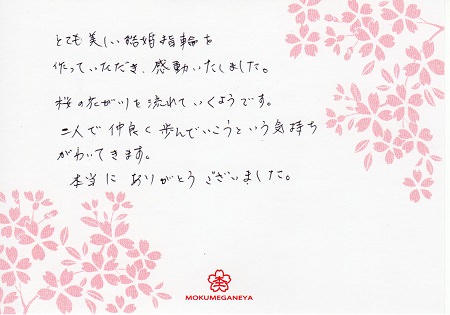 とても美しい結婚指輪を
作っていただき、感動いたしました。
桜の花がりを流れていくようです。
二人で仲良く歩んでいこうという気持ち
がわいてきます。
本当にありがとうございました。
MOKUMEGANEYA